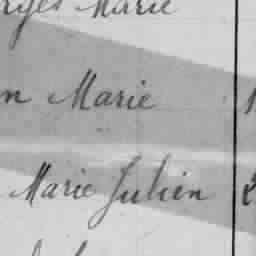 Marie
n Marie
Marie Julien